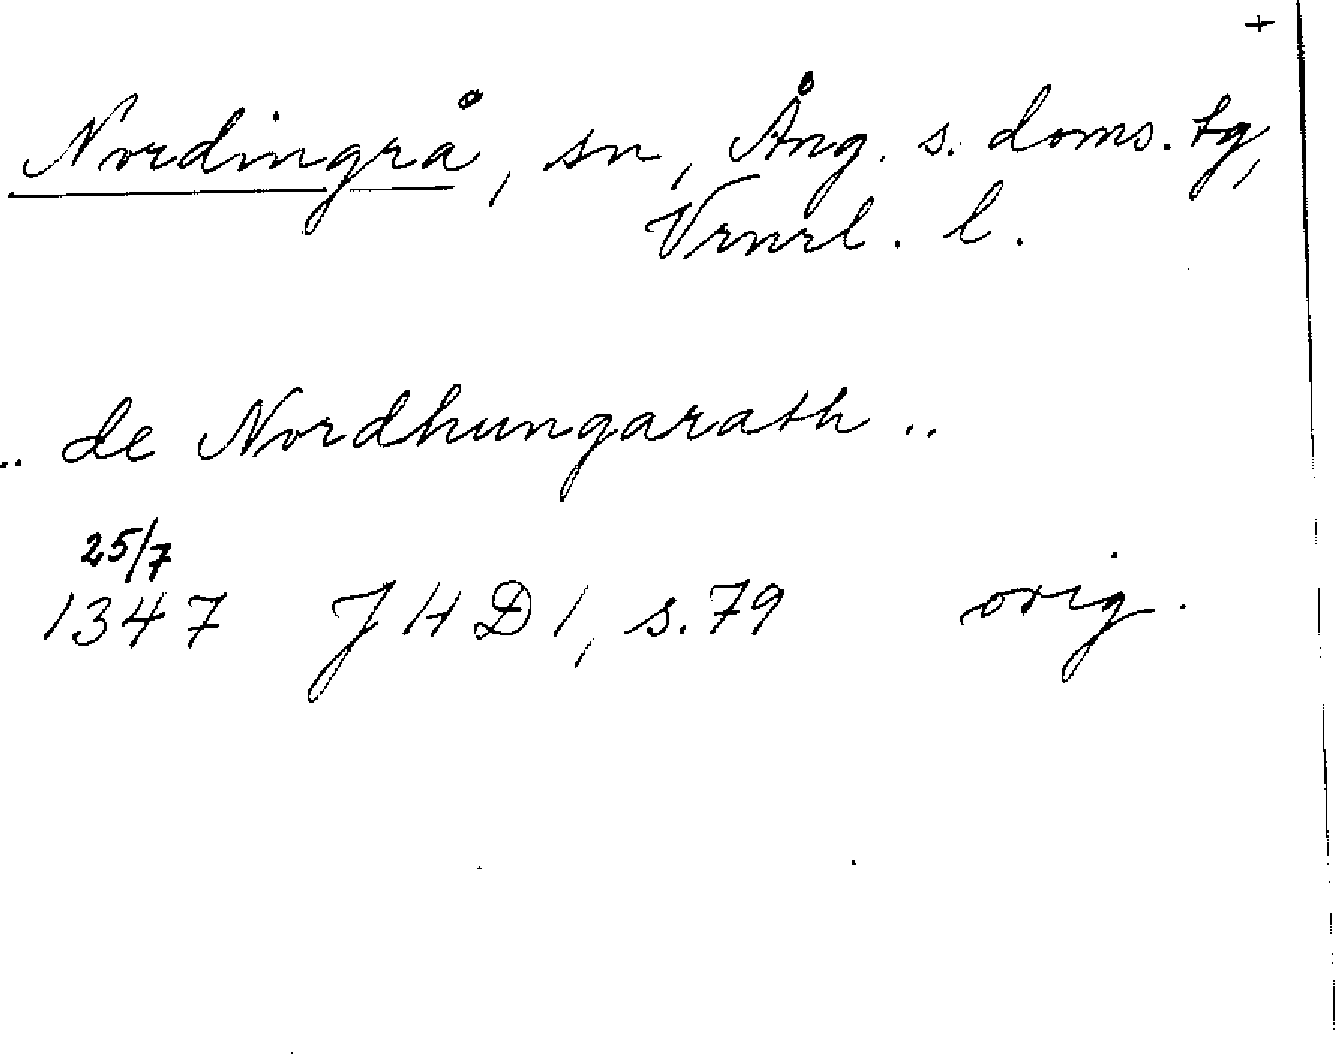 +
Nordingrå, sn, Ång. s. doms. tg,
Vrnrl. l.
.. de Nordhungarath ..
25/7
1347 JHD 1, s. 79 orig.